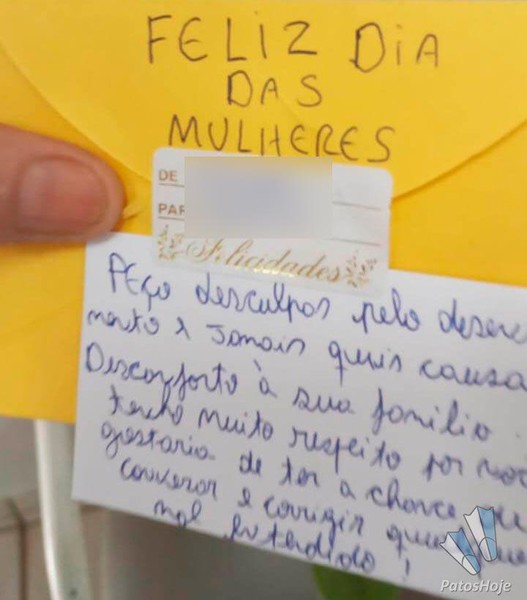 FELIZ DIA
DAS
MULHERES
DE
PAR
Felicidades
Peço desculpas pelo desen
mento e jamais quis causa
Desconforto à sua família.
tenho muito respeito por
gostaria de ter a chance
conversar e corrigir
mal entendido!
PatosHoje